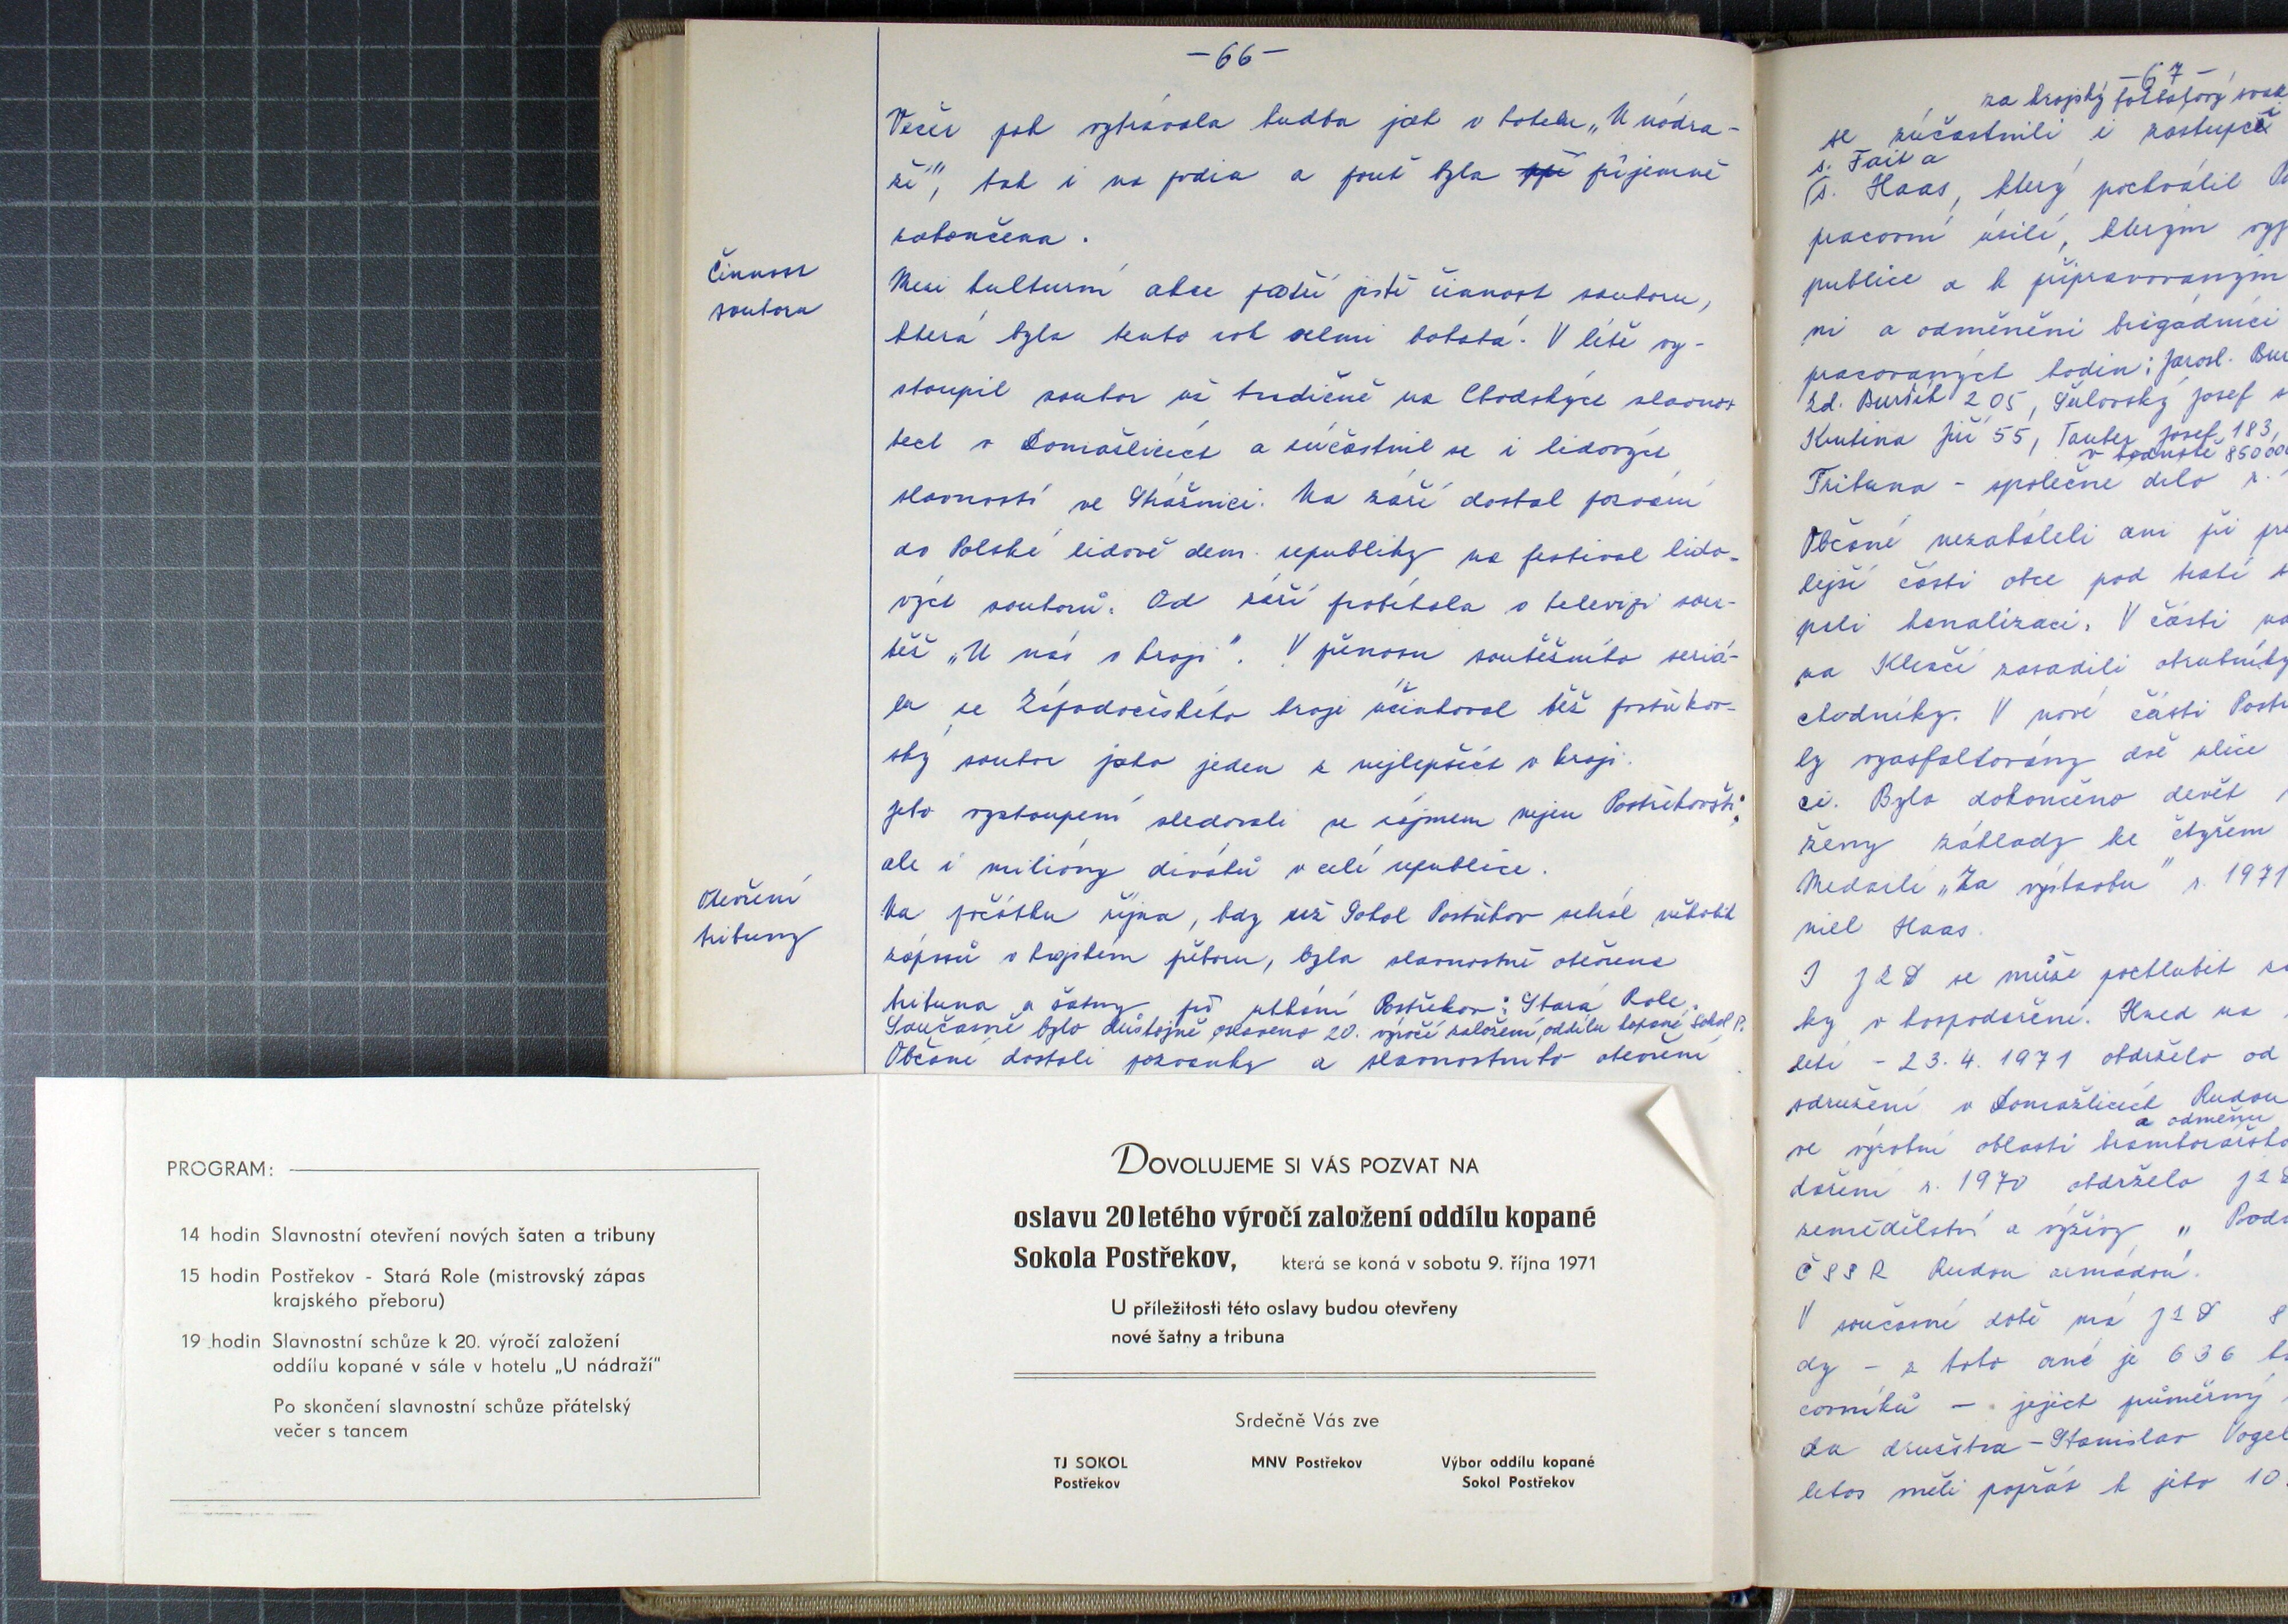 -66-
Večer pak vyhrávala hudba jak v hotelu „U nádra-
ží", tak i na podiu a pouť byla příjemně
zakončena.
Činnost
souboru
Mezi kulturní akce patří jistě činnost souboru,
která byla tento rok velmi bohatá. V létě vy-
stoupil soubor už tradičně na Chodských slavnos
tech v Domažlicích a zúčastnil se i lidových
slavností ve Strážnici. Na září dostal pozvání
do Polské lidově dem. republiky na festival lido-
vých souborů. Od září probíhala v televizi sou-
těž „U nás v kraji". V přenosu soutěžního seriá-
lu ze Západočeského kraje účinkoval též postřekov-
ský soubor jako jeden z nejlepších v kraji.
Jeho vystoupení sledovali se zájmem nejen Postřekovští,
ale i milióny diváků v celé republice.
Otevření
tribuny
Na počátku října, kdy už Sokol Postřekov sehrál několik
zápasů v krajském přeboru, byla slavnostně otevřena
tribuna a šatny při utkání Postřekov : Stará Role.
Současně bylo důstojně oslaveno 20. výročí založení oddílu kopané Sokol P.
Občané dostali pozvánky a slavnostního otevření
PROGRAM:
14 hodin Slavnostní otevření nových šaten a tribuny
15 hodin Postřekov - Stará Role (mistrovský zápas
krajského přeboru)
19 hodin Slavnostní schůze k 20. výročí založení
oddílu kopané v sále v hotelu „U nádraží"
Po skončení slavnostní schůze přátelský
večer s tancem
DOVOLUJEME SI VÁS POZVAT NA
oslavu 20letého výročí založení oddílu kopané
Sokola Postřekov, která se koná v sobotu 9. října 1971
U příležitosti této oslavy budou otevřeny
nové šatny a tribuna
Srdečně Vás zve
TJ SOKOL
Postřekov
MNV Postřekov
Výbor oddílu kopané
Sokol Postřekov
-67-
za krajský fotbalový svaz
se zúčastnili i zástupci
s. Fait a
(s. Haas, který pochválil
pracovní úsilí, kterým
publice a k připravovaným
ni a odměněni brigádníci
pracovaných hodin: Jarosl.
Zd. Buršík 205, Šulovský Josef
Kutina Jiří 55, Tauber Josef 183,
v hodnotě 850000
Tribuna - společné dílo
Občané nezaháleli ani při
lejší části obce pod tratí
pali kanalizaci. V části
na Klenčí zasadili obrubníky
chodníky. V nové části
ly vyasfaltovány dvě ulice
ci. Bylo dokončeno devět
ženy základy ke čtyřem
Medaili „Za výstavbu" r. 1971
niel Haas.
I JZD se může pochlubit
ky v hospodaření. Hned na
letí - 23. 4. 1971 obdrželo od
sdružení v Domažlicích Rudou
a odměnu
ve výrobní oblasti
daření r. 1970 obdrželo JZD
zemědělství a výživy „
ČSSR Rudou armádou.
V současné době má JZD
dy - z toho orné je 636
covníků - jejich průměrný
da družstva - Stanislav Vogel
letos měli popřát k jeho 10.